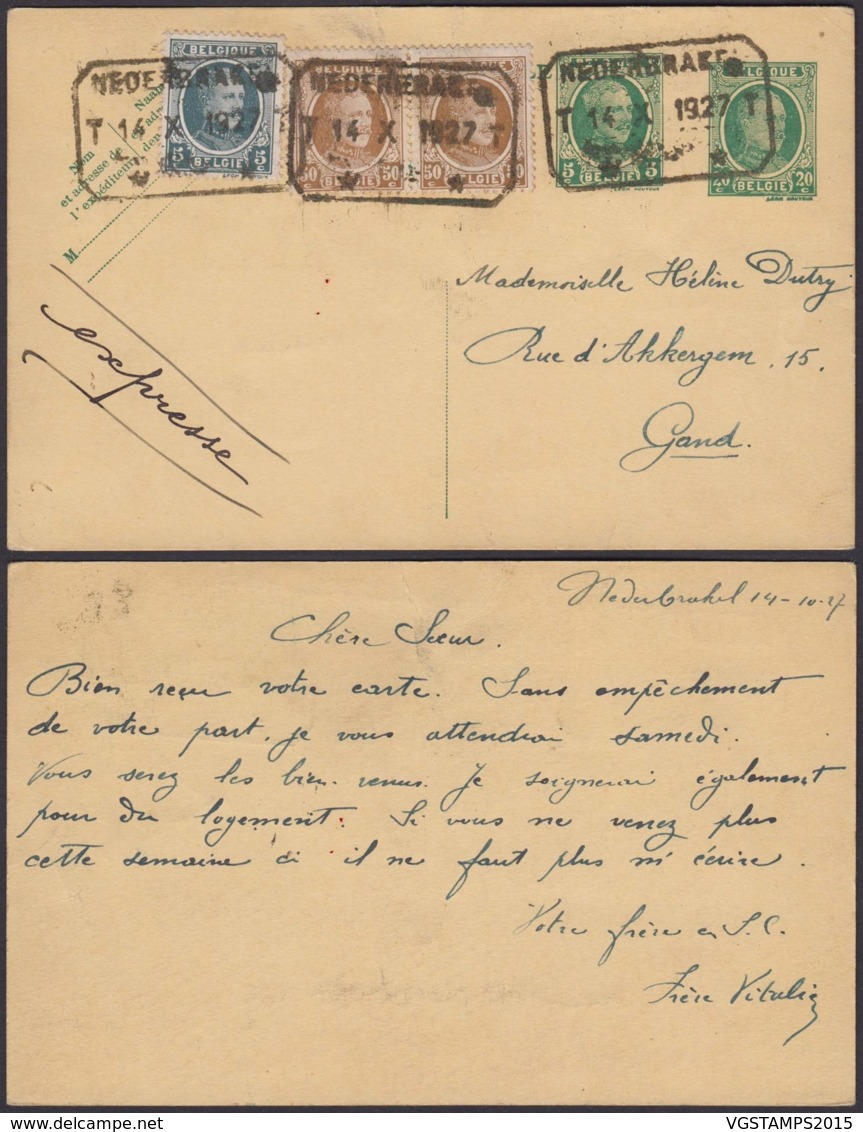 NEDERBRAKEL
T 14 X 1927
BELGIQUE
5c BELGIE 5c
NEDERBRAKEL
T 14 X 1927 T
BELGIQUE
50c BELGIE 50c
50c BELGIE 50c
NEDERBRAKEL
T 14 X 1927 T
5c BELGIE 5c
LÉON HOUYOUX
BELGIQUE
20c BELGIE 20c
LÉON HOUYOUX
Naam
en adres
der
Nom
et adresse de
l'expéditeur
M
expresse
Mademoiselle Hélène Dutry
Rue d'Akkergem, 15.
Gand.
Nederbrakel 14-10-27
Chère Sœur.
Bien reçu votre carte. Sans empêchement
de votre part, je vous attendrai samedi.
Vous serez les bien-venus. Je soignerai également
pour du logement. Si vous ne venez plus
cette semaine ci il ne faut plus m'écrire.
Votre frère en S.C.
Frère
VGSTAMPS2015